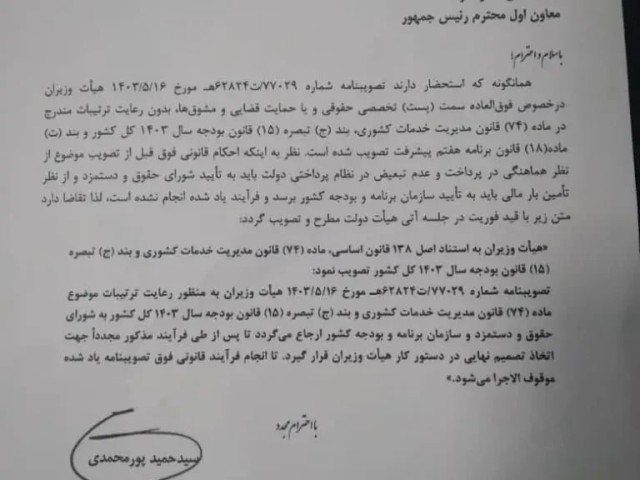 معاون اول محترم رئیس جمهور
باسلام و احترام؛
همانگونه که استحضار دارند تصویبنامه شماره ۷۷۰۲۹/ت۶۲۸۲۴هـ مورخ ۱۴۰۳/۵/۱۶ هیأت وزیران
درخصوص فوق‌العاده سمت (پست) تخصصی حقوقی و یا حمایت قضایی و مشوق‌ها، بدون رعایت ترتیبات مندرج
در ماده (۷۴) قانون مدیریت خدمات کشوری، بند (ج) تبصره (۱۵) قانون بودجه سال ۱۴۰۳ کل کشور و بند (ت)
ماده(۱۸) قانون برنامه هفتم پیشرفت تصویب شده است. نظر به اینکه احکام قانونی فوق قبل از تصویب موضوع از
نظر هماهنگی در پرداخت و عدم تبعیض در نظام پرداختی دولت باید به تأیید شورای حقوق و دستمزد و از نظر
تأمین بار مالی باید به تأیید سازمان برنامه و بودجه کشور برسد و فرآیند یاد شده انجام نشده است، لذا تقاضا دارد
متن زیر با قید فوریت در جلسه آتی هیأت دولت مطرح و تصویب گردد:
«هیأت وزیران به استناد اصل ۱۳۸ قانون اساسی، ماده (۷۴) قانون مدیریت خدمات کشوری و بند (ج) تبصره
(۱۵) قانون بودجه سال ۱۴۰۳ کل کشور تصویب نمود:
تصویبنامه شماره ۷۷۰۲۹/ت۶۲۸۲۴هـ مورخ ۱۴۰۳/۵/۱۶ هیأت وزیران به منظور رعایت ترتیبات موضوع
ماده (۷۴) قانون مدیریت خدمات کشوری و بند (ج) تبصره (۱۵) قانون بودجه سال ۱۴۰۳ کل کشور به شورای
حقوق و دستمزد و سازمان برنامه و بودجه کشور ارجاع می‌گردد تا پس از طی فرآیند مذکور مجدداً جهت
اتخاذ تصمیم نهایی در دستور کار هیأت وزیران قرار گیرد. تا انجام فرآیند قانونی فوق تصویبنامه یاد شده
موقوف الاجرا می‌شود.»
با احترام مجدد
سیدحمید پورمحمدی